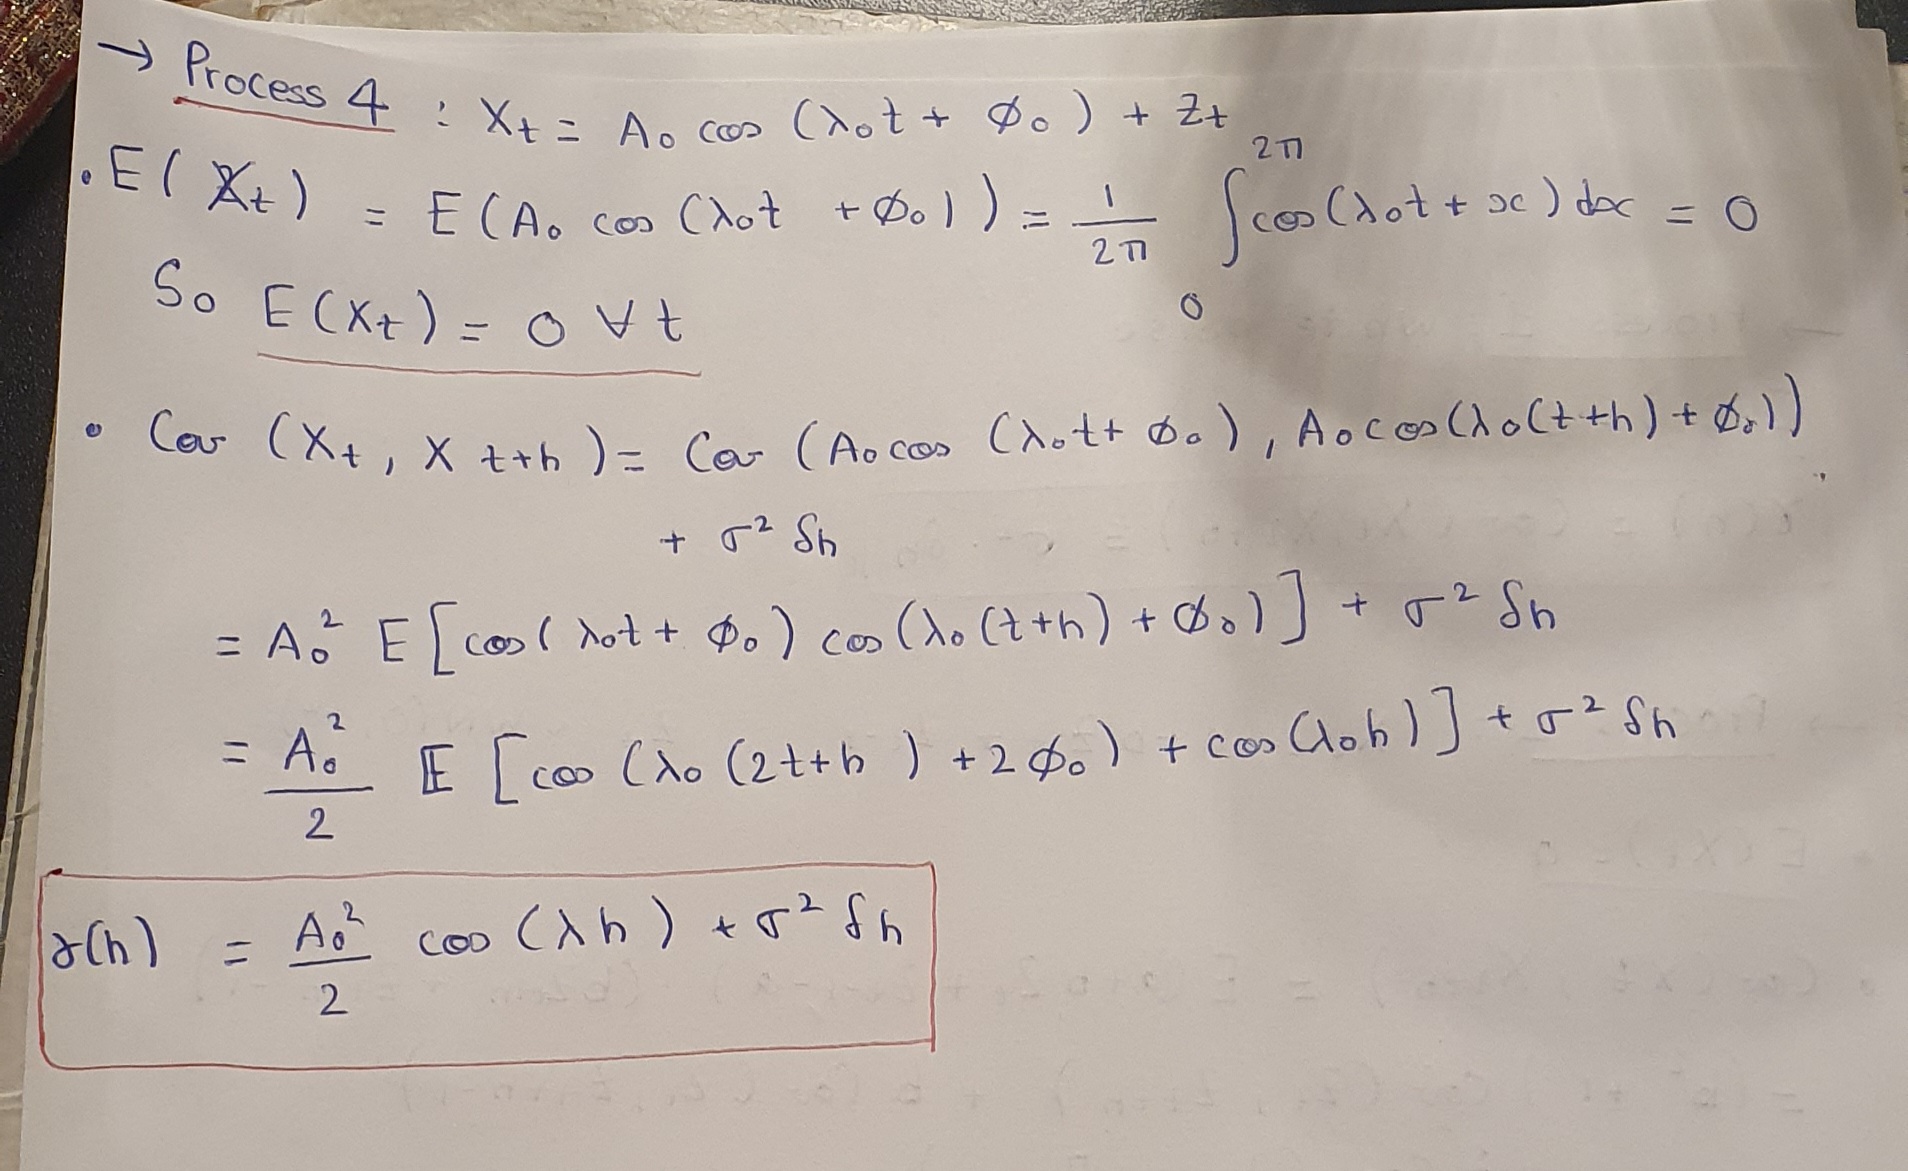 → Process 4 : Xt = A₀ cos (λ₀t + ϕ₀) + Zt
• E(Xt) = E(A₀ cos (λ₀t + ϕ₀)) = 1/2π ∫₀^2π cos(λ₀t + x) dx = 0
So E(Xt) = 0 ∀ t
• Cov (Xt, X t+h) = Cov (A₀ cos (λ₀t + ϕ₀), A₀ cos(λ₀(t+h) + ϕ₀))
+ σ² δh
= A₀² E [cos(λ₀t + ϕ₀) cos (λ₀(t+h) + ϕ₀)] + σ² δh
= A₀²/2 E [cos (λ₀ (2t+h) + 2ϕ₀) + cos(λ₀h)] + σ² δh
γ(h) = A₀²/2 cos (λh) + σ² δh